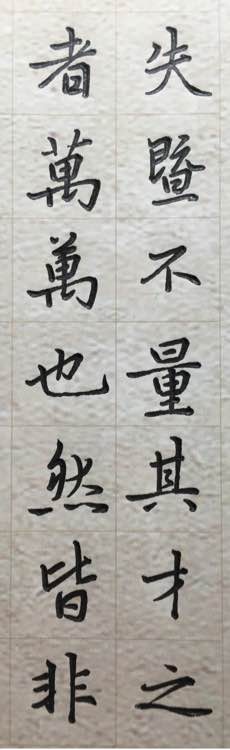 失暨不量其才之
者萬萬也然皆非